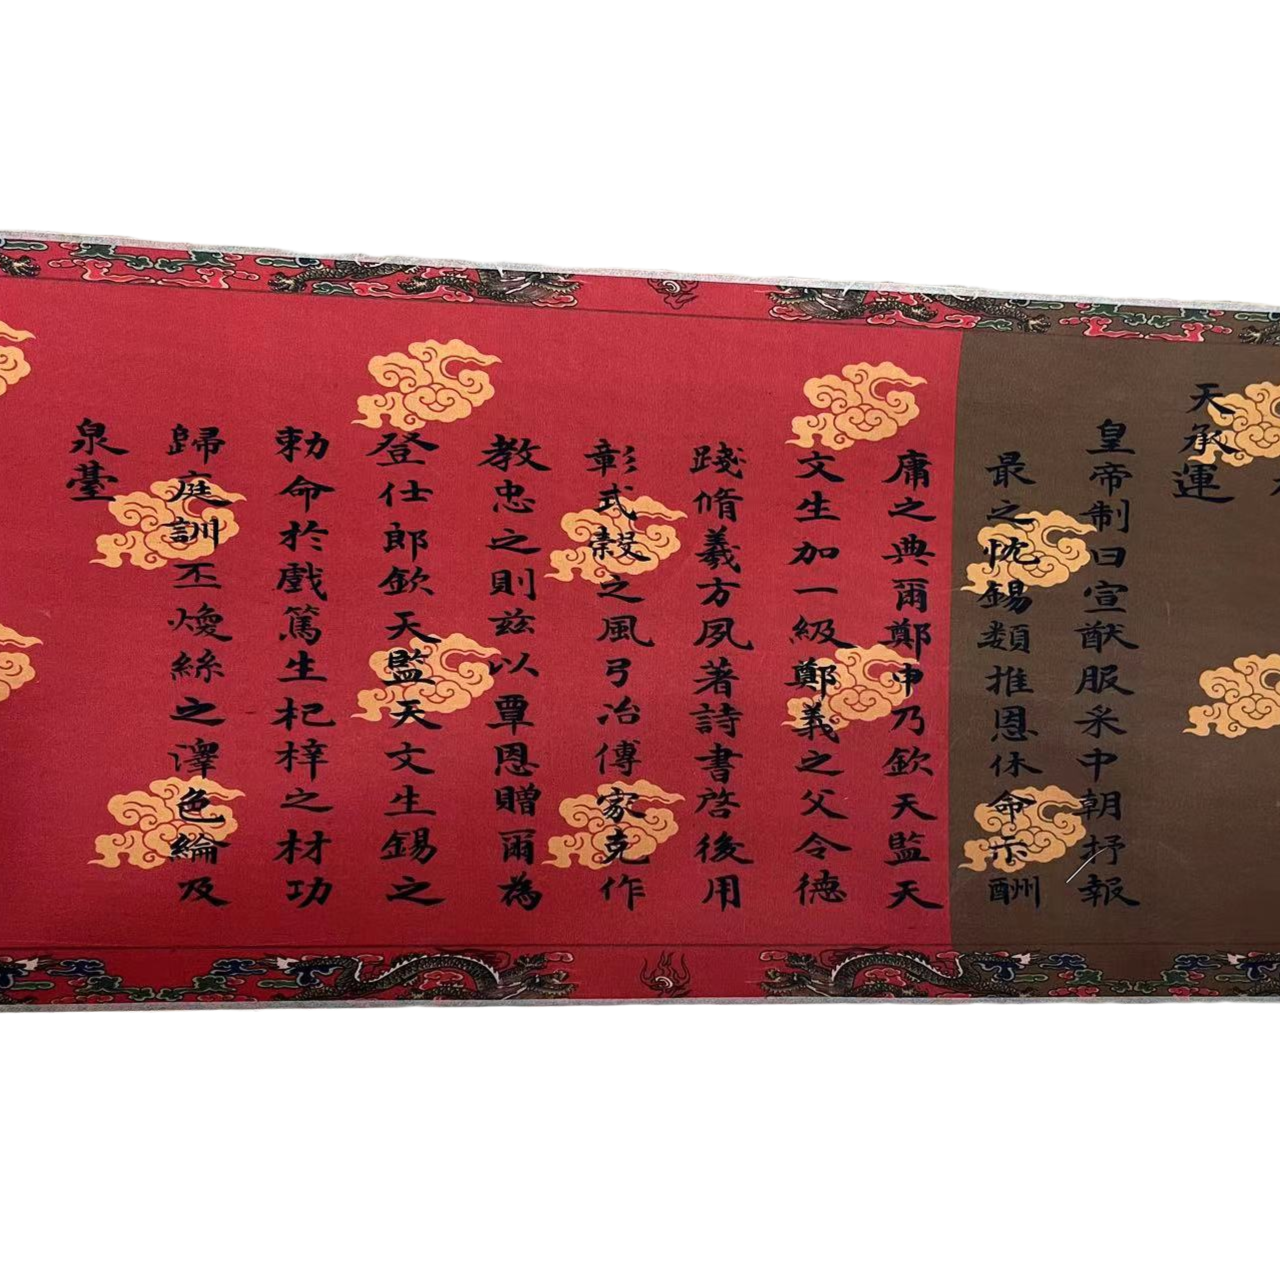 天承運
皇帝制曰宣猷服采中朝抒報
最之忱錫類推恩休命示酬
庸之典爾鄭申乃欽天監天
文生加一級鄭義之父令德
踐脩義方夙著詩書啓後用
彰式穀之風弓冶傅家克作
教忠之則兹以覃恩贈爾為
登仕郎欽天監天文生錫之
勅命於戲篤生杞梓之材功
歸庭訓丕煥絲之澤色綸及
泉臺